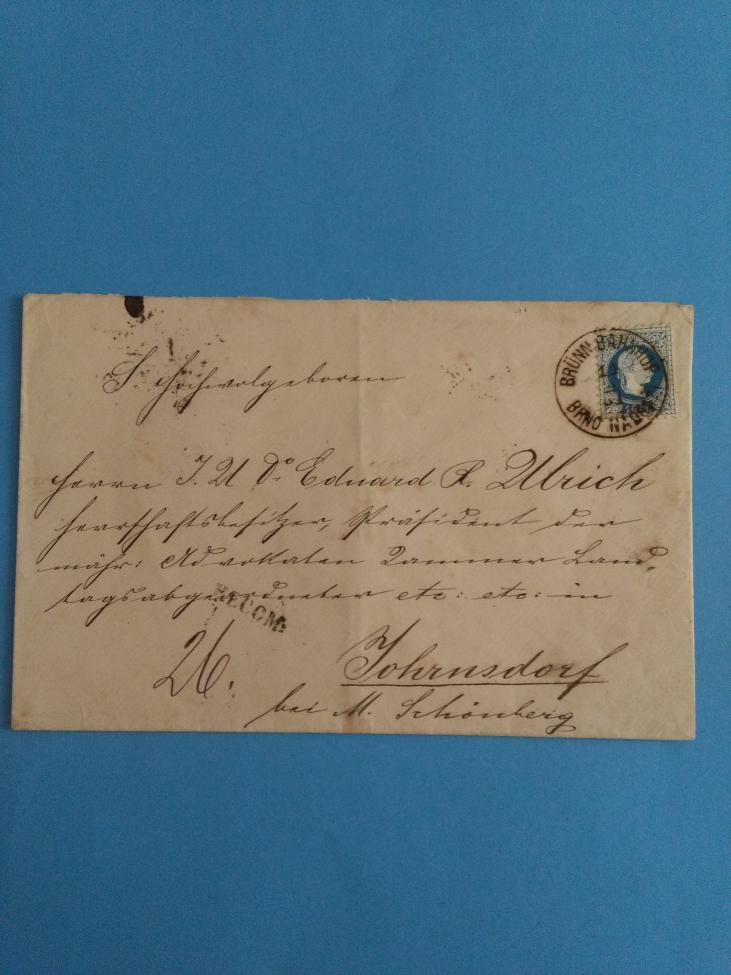 BRÜNN BAHNHOF
BRNO NÁDR
S. Hochwolgeboren
Herrn J. U Dr. Eduard R. Ulrich
Herrschaftsbesitzer, Präsident der
mähr: Advokaten Kammer Land-
tagsabgeordneter etc: etc: in
RECOM:
26.
Johrnsdorf
bei M. Schönberg